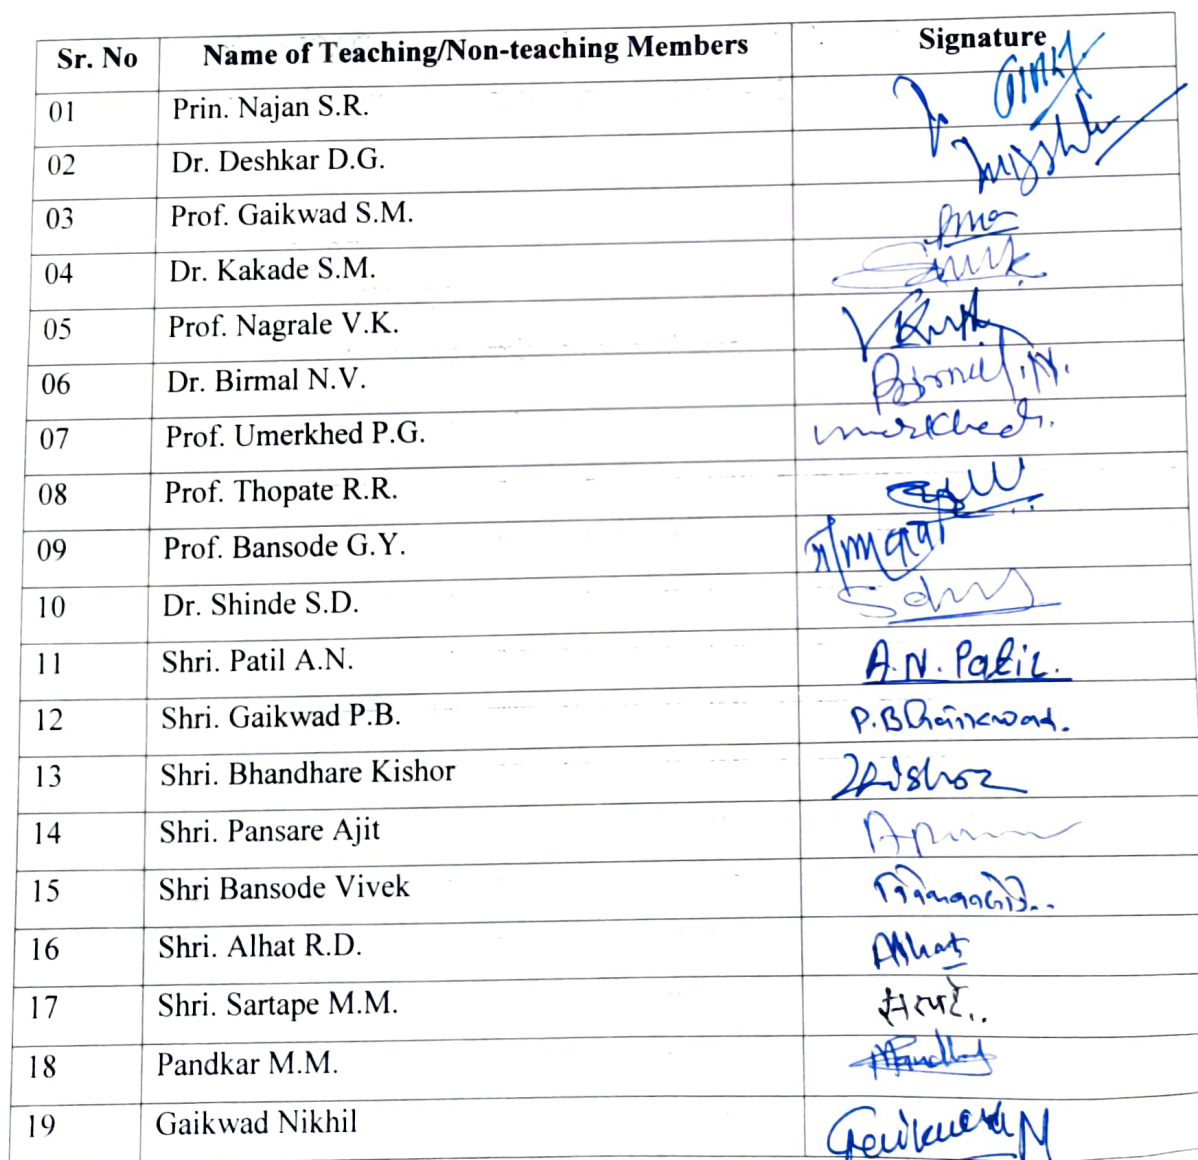 Sr. No Name of Teaching/Non-teaching Members Signature
01 Prin. Najan S.R.
02 Dr. Deshkar D.G.
03 Prof. Gaikwad S.M.
04 Dr. Kakade S.M.
05 Prof. Nagrale V.K.
06 Dr. Birmal N.V. Birmal.N.
07 Prof. Umerkhed P.G. umerkhed
08 Prof. Thopate R.R.
09 Prof. Bansode G.Y.
10 Dr. Shinde S.D.
11 Shri. Patil A.N. A.N. Patil.
12 Shri. Gaikwad P.B. P.B Gaikwad.
13 Shri. Bhandhare Kishor Kishor
14 Shri. Pansare Ajit
15 Shri Bansode Vivek
16 Shri. Alhat R.D. Alhat
17 Shri. Sartape M.M.
18 Pandkar M.M.
19 Gaikwad Nikhil Gaikwad N